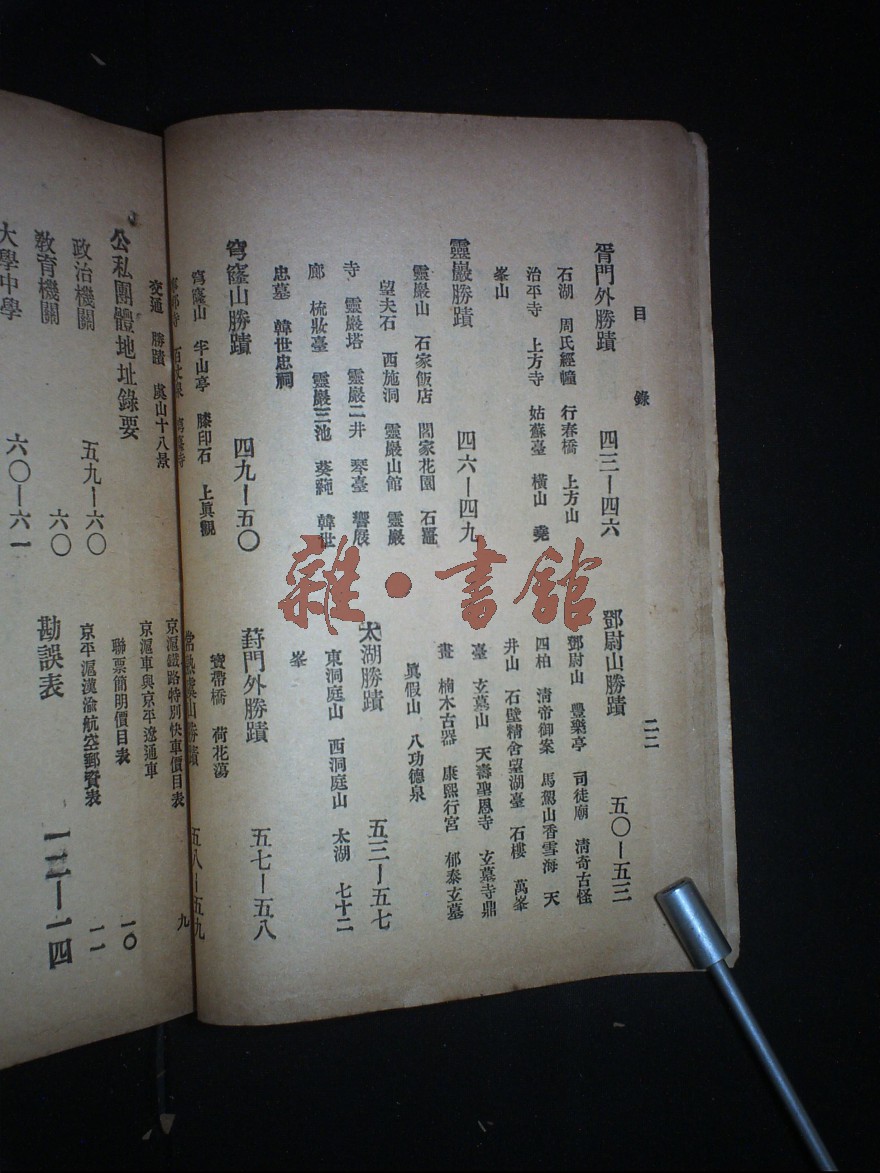 目錄
二二
胥門外勝蹟 四三—四六
石湖 周氏經幢 行春橋 上方山
治平寺 上方寺 姑蘇臺 橫山 堯
峯山
靈巖勝蹟 四六—四九
靈巖山 石家飯店 閻家花園 石鼉
望夫石 西施洞 靈巖山館 靈巖
寺 靈巖塔 靈巖二井 琴臺 響屧
廊 梳妝臺 靈巖三池 葵蒓 韓世
忠墓 韓世忠祠
穹窿山勝蹟 四九—五〇
穹窿山 半山亭 膝印石 上眞觀
鄧尉山勝蹟 五〇—五三
鄧尉山 豐樂亭 司徒廟 淸奇古怪
四柏 淸帝御案 馬駕山香雪海 天
井山 石壁精舍望湖臺 石樓 萬峯
臺 玄墓山 天壽聖恩寺 玄墓寺鼎
畫 楠木古器 康熙行宮 郁泰玄墓
眞假山 八功德泉
太湖勝蹟 五三—五七
東洞庭山 西洞庭山 太湖 七十二
峯
葑門外勝蹟 五七—五八
寶帶橋 荷花蕩
常熟虞山勝蹟 五八—五九
交通 勝蹟 虞山十八景
公私團體地址錄要
政治機關 五九—六〇
敎育機關 六〇
大學中學 六〇—六一
京滬鐵路特別快車價目表 九
京滬車與京平遼通車
聯票簡明價目表 一〇
京平滬漢渝航空郵覽表 一一
勘誤表 一二—一四
雜·書館